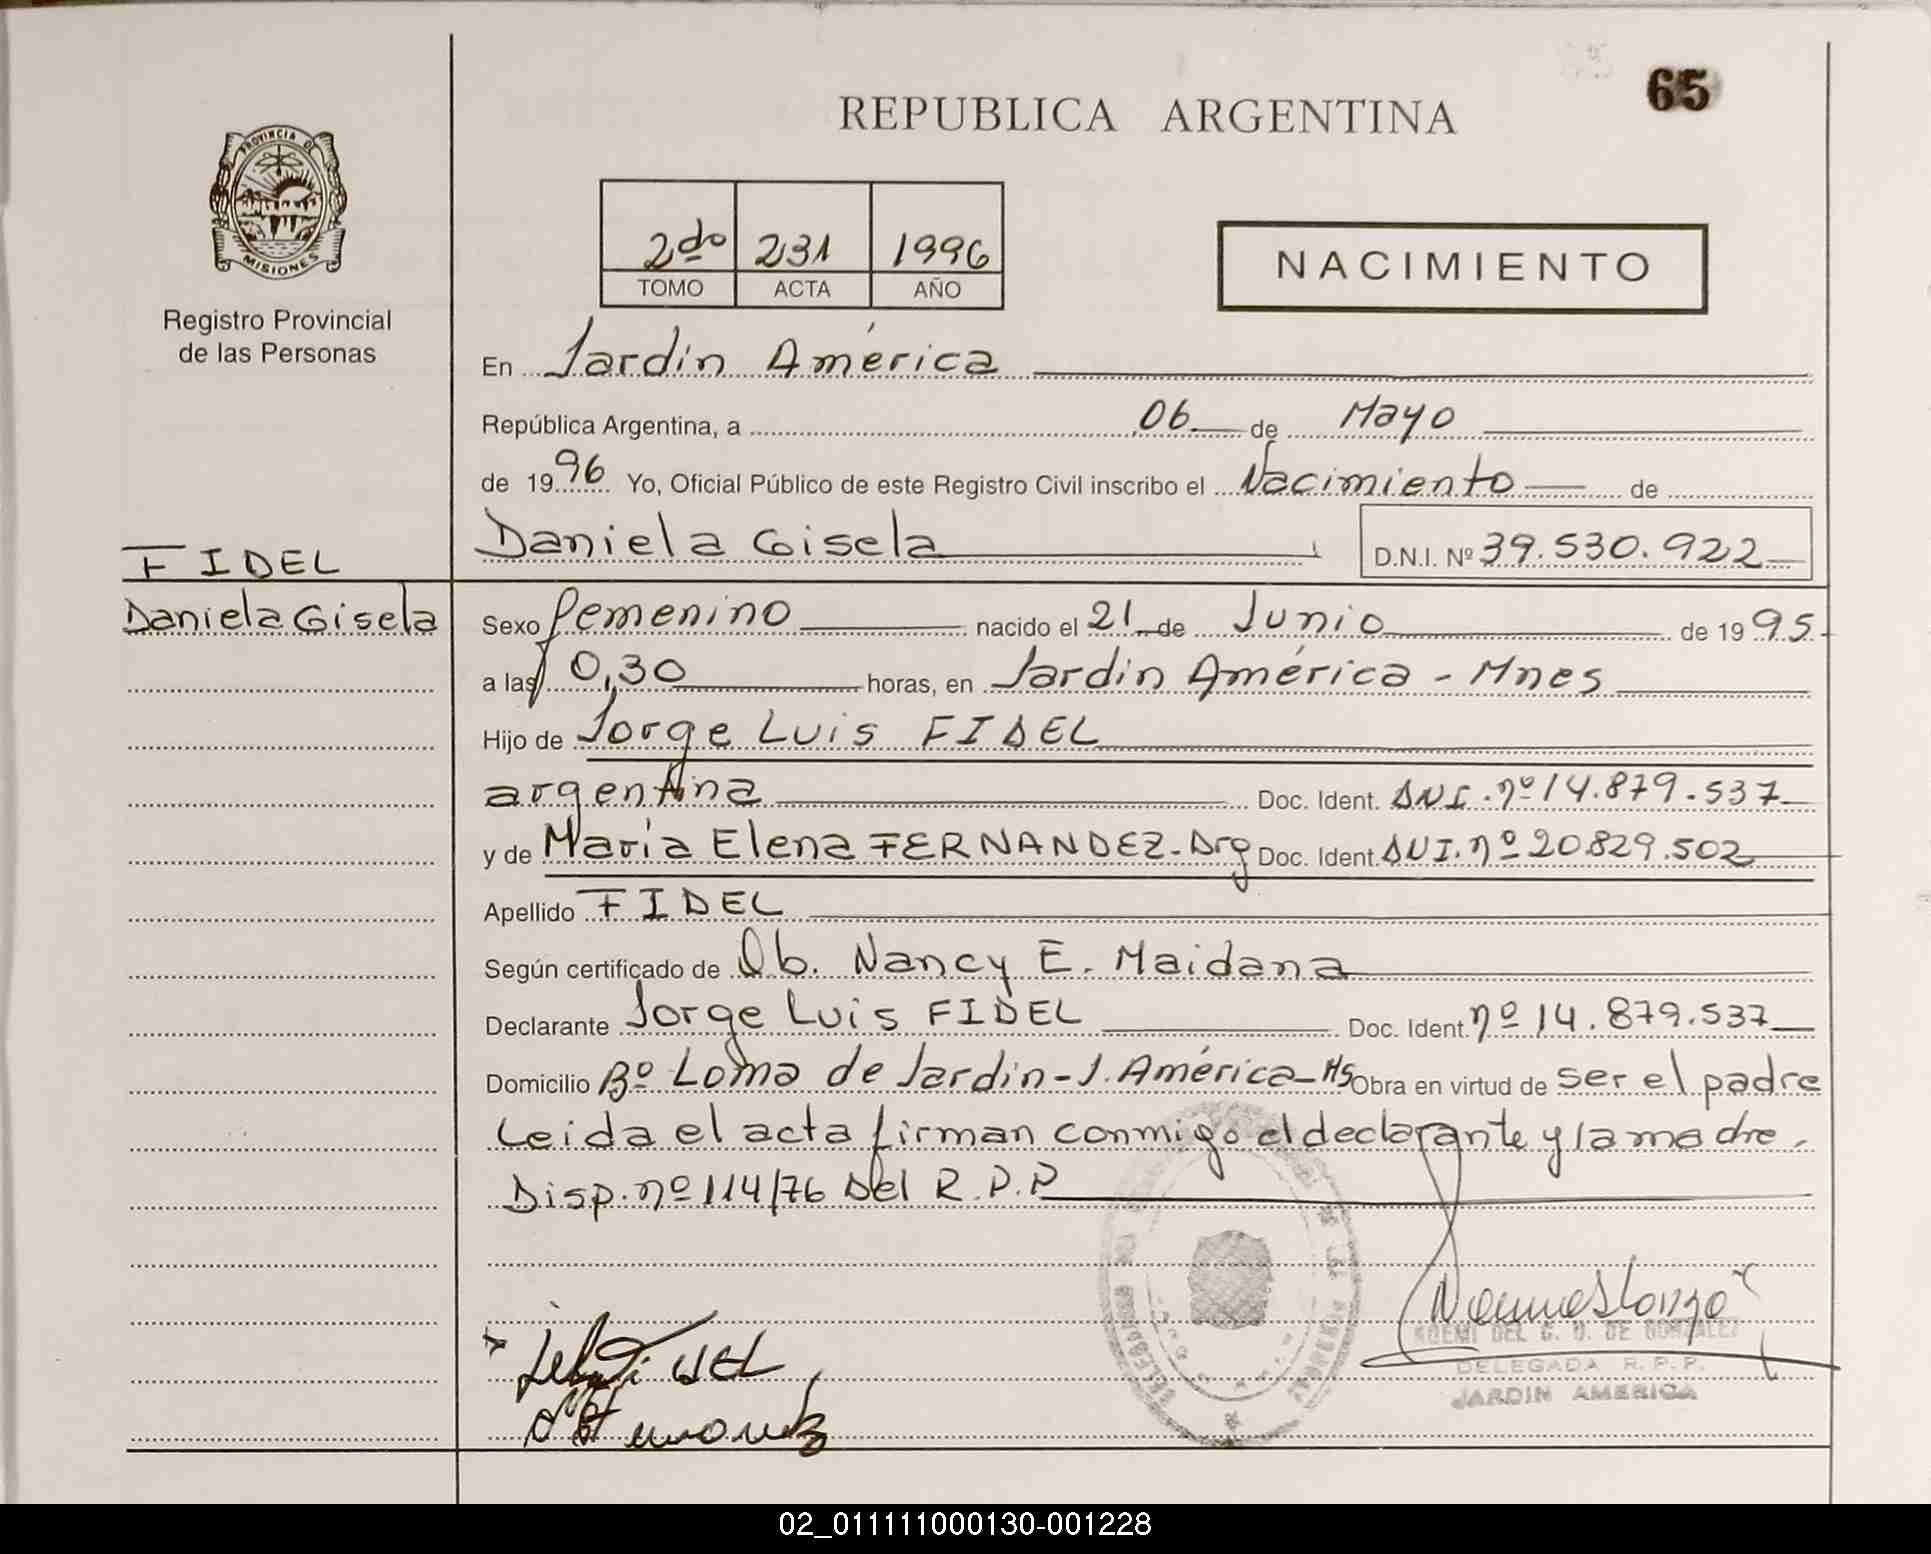 65
REPUBLICA ARGENTINA
PROVINCIA DE
MISIONES
Registro Provincial
de las Personas
2do 231 1996
TOMO ACTA AÑO
NACIMIENTO
En Jardín América
República Argentina, a 06 de Mayo
de 1996 Yo, Oficial Público de este Registro Civil inscribo el Nacimiento de
Daniela Gisela D.N.I. Nº 39.530.922
FIDEL
Daniela Gisela
Sexo femenino nacido el 21 de Junio de 1995
a las 0,30 horas, en Jardín América - Mnes
Hijo de Jorge Luis FIDEL
argentina Doc. Ident. DNI. nº 14.879.537
y de María Elena FERNANDEZ - Arg Doc. Ident. DNI. nº 20.829.502
Apellido FIDEL
Según certificado de Ob. Nancy E. Maidana
Declarante Jorge Luis FIDEL Doc. Ident. nº 14.879.537
Domicilio Bº Loma de Jardín - J. América - Ms Obra en virtud de ser el padre
Leida el acta firman conmigo el declarante y la madre.
Disp. nº 114/76 Del R.P.P
NOEMI DEL C. D. DE GONZALEZ
DELEGADA R.P.P.
JARDIN AMERICA
02_011111000130-001228